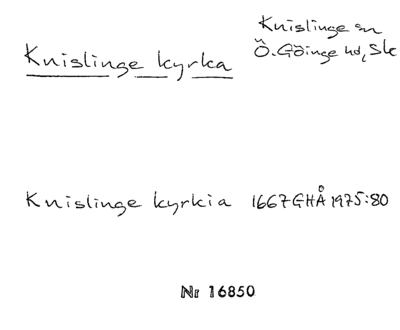 Knislinge kyrka
Knislinge sn
Ö. Göinge hd, Sk
Knislinge kyrkia 1667 GHÅ 1975:80
Nr 16850